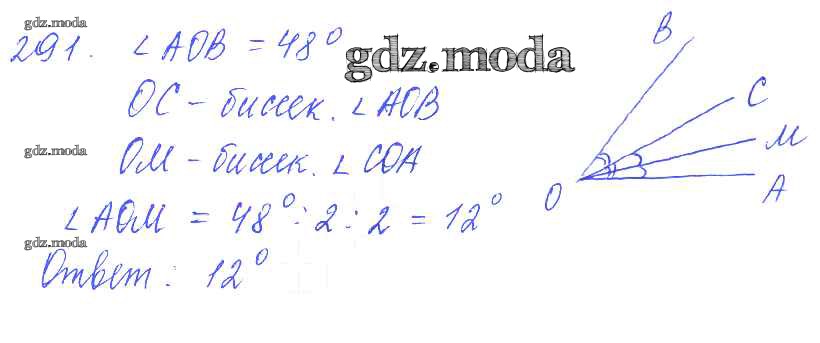 gdz.moda
291. ∠AOB = 48°
gdz.moda
B
OC - биссек. ∠AOB
C
gdz.moda
OM - биссек. ∠COA
M
O
A
∠AOM = 48° : 2 : 2 = 12°
gdz.moda
Ответ: 12°